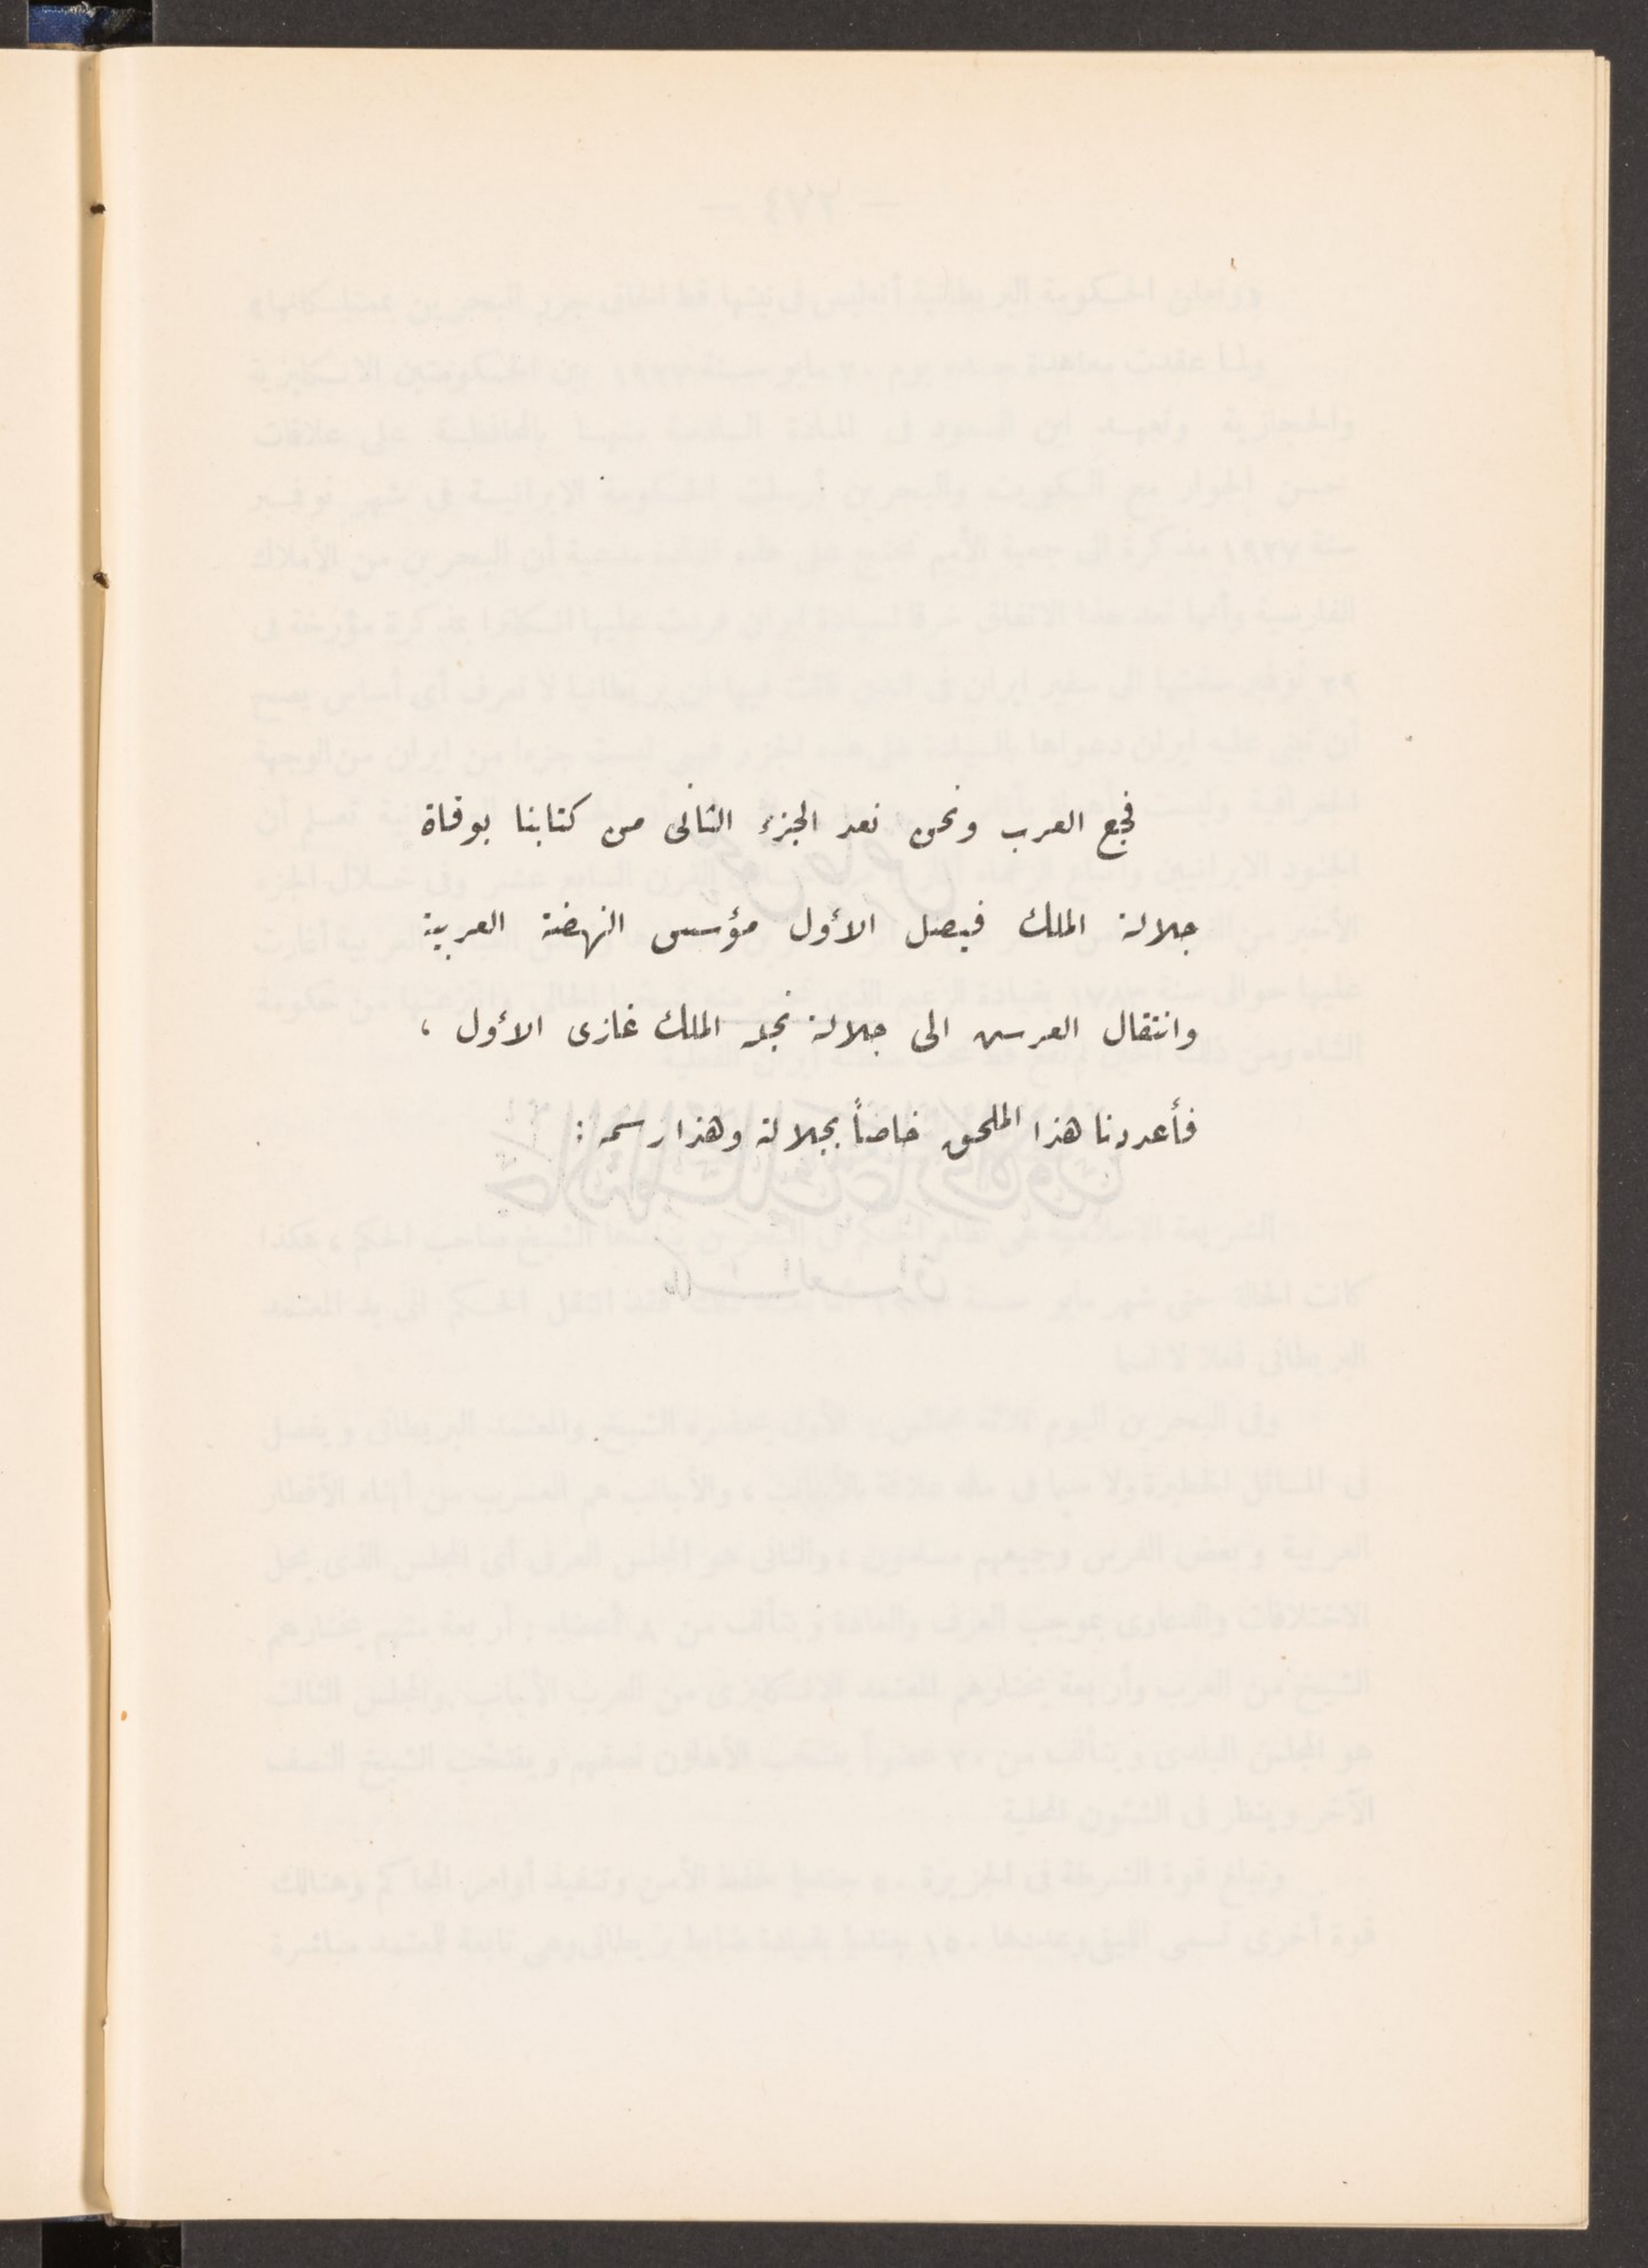 فجع العرب ونحن نعد الجزء الثانى من كتابنا بوفاة
جلالة الملك فيصل الأول مؤسس النهضة العربية
وانتقال العرش الى جلالة نجله الملك غازى الأول ،
فأعددنا هذا الملحق خاصاً بجلالته وهذا رسمه :